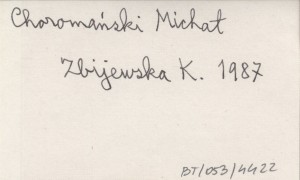 Choromański Michał
Zbijewska K. 1987
BT/053/4422